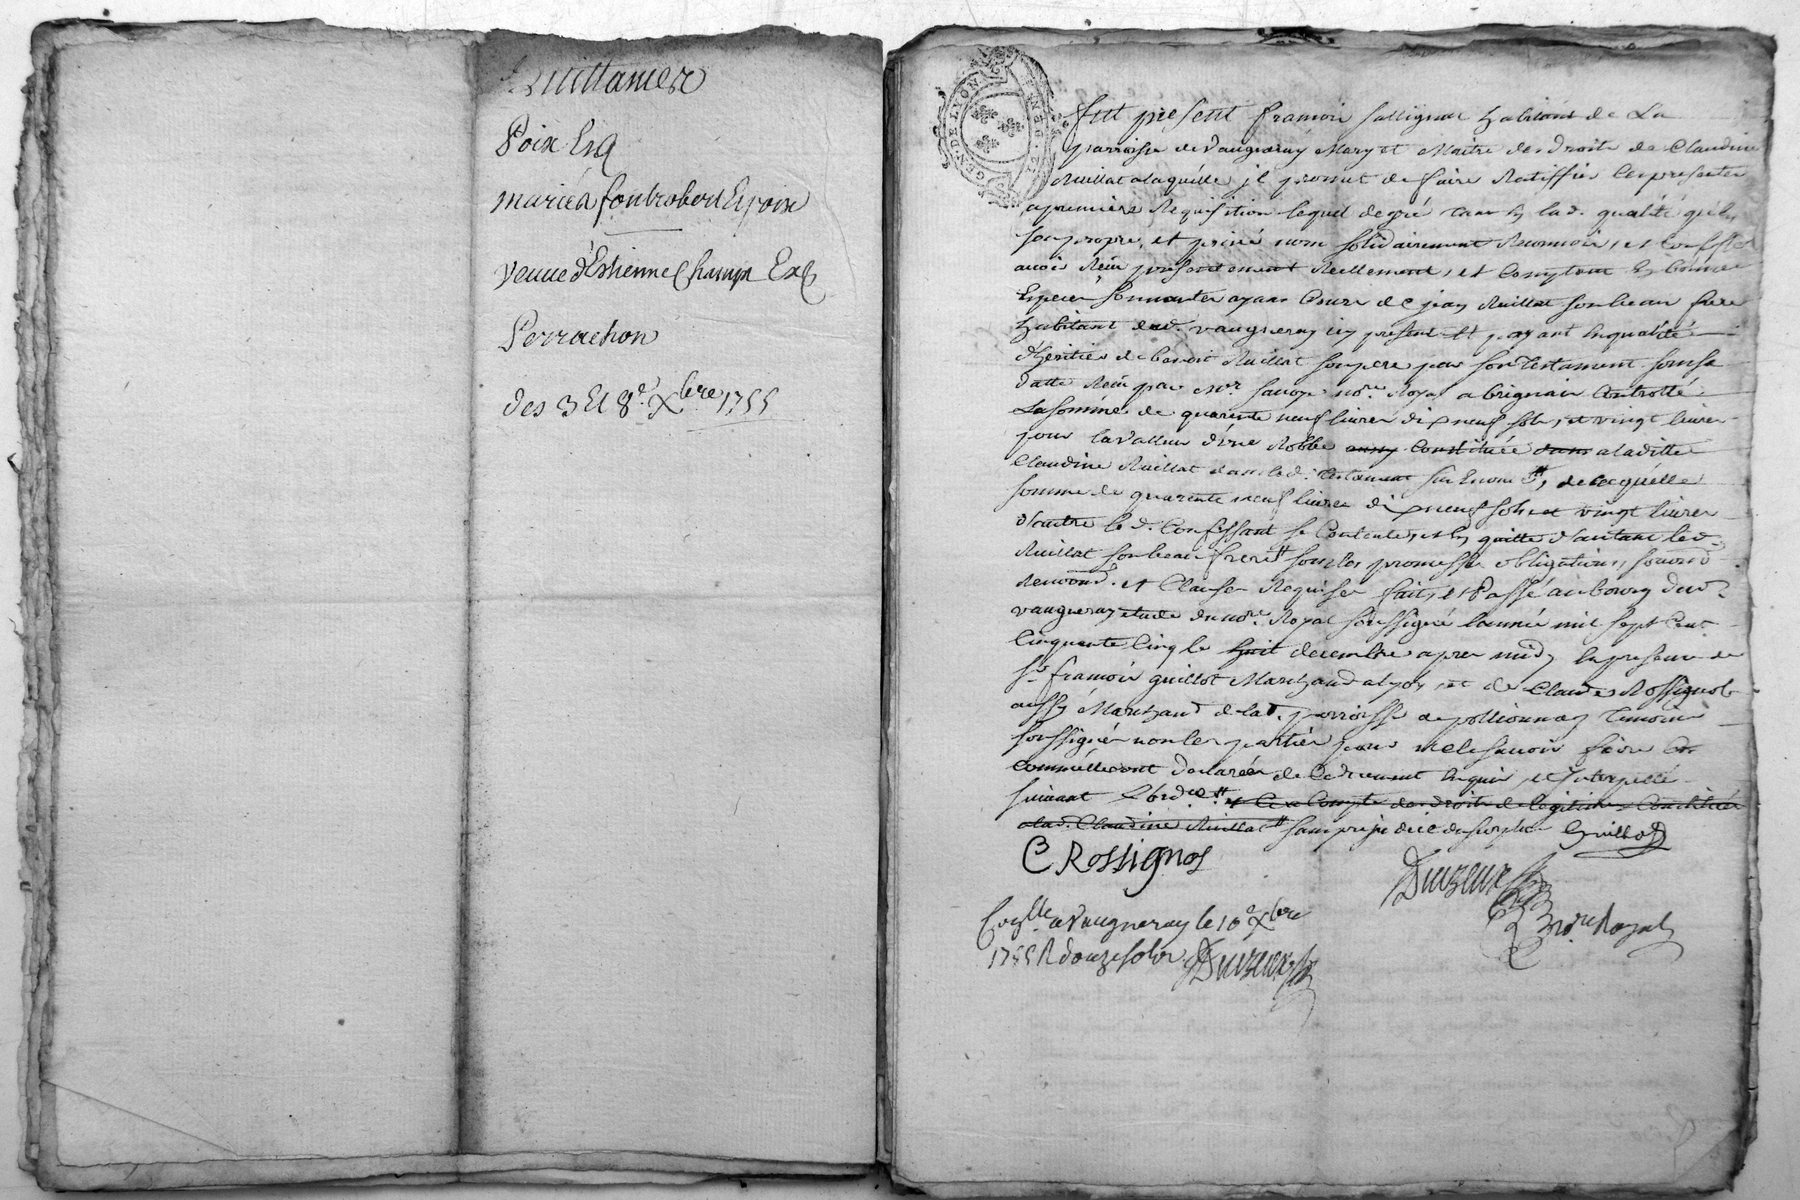 Quittances
Poix Et
mariéa fontrobert Et poix
venue d'Estienne Champ Et
Perrachon
des 3 Et 8e Xbre 1755
GEN. DE LYON
fut present françois sallignat habitant de La
parroisse de vaugneray Mary et Maitre des droits de Claudine
Ruillat a laquelle jl promet de faire Ratiffier les presentes
a premiere Requisition lequel de gré tant en lad. qualité qu'en
son propre, et privé nom solidairement Reconnoit, et Confesse
avoir Reçu presentement Reellement, et Comptant En bonnes
Especes sonnantes ayant Cours de jean Ruillat son beau frere
habitant dud. vaugneray icy present Et payant En qualité
d'heritier de benoit Ruillat son pere par son Testament sous sa
datte Reçu par Mr. no.re Royal a brignais Controllé
La somme de quarente neuf livres dix neuf sols, et vingt livres
pour la valleur d'une Robbe Constituée a laditte
Claudine Ruillat dans led. testament de laquelle
somme de quarente neuf livres dix neuf sols et vingt livres
d'autre le d. Confessant se Contente, et En quitte d'autant led.
Ruillat son beau frere sous les promesses obligations, soumd.
renoond. et Clauses Requises fait, et Passé au bourg dud.
vaugneray etude du no.re Royal soussigné l'année mil sept Cent
Cinquante Cinq le huit decembre apres midy En presence de
Sr. françois guillot Marchand a lyon, et de Claude Rossignol
aussy Marchand de lad. parroisse de pollionnay temoins
soussignés non les parties pour ne le sçavoir faire
Comme Elles ont declarés de Ce duement Enquis, et Interpellé
suivant L'ordce. et Ce a Compte des droits de legitime Constitués
a lad. Claudine Ruillat sans prejudice du surplus Guillot
C Rossignol
no.re Royal
Conlle. a Vaugneray le 10e Xbre
1755 R douze sols